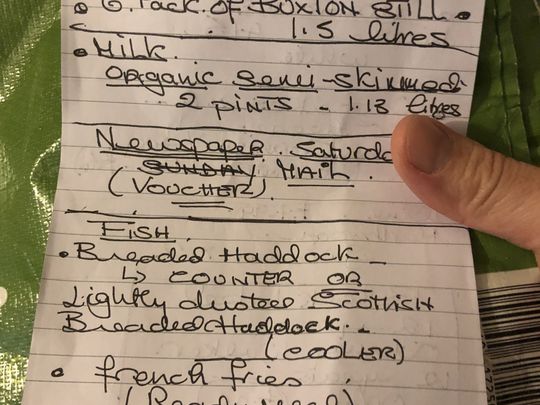 6. Pack OF BUXTON STILL.
1.5 litres
• Milk.
organic semi-skimmed
2 pints - 1.13 litres
Newspaper. Saturda
SUNDAY MAIL.
(VOUCHER)
FISH
• Breaded Haddock -
↳ COUNTER OR
Lightly dusted Scottish
Breaded Haddock. -
(COOLER)
• french fries
(Ready meal)